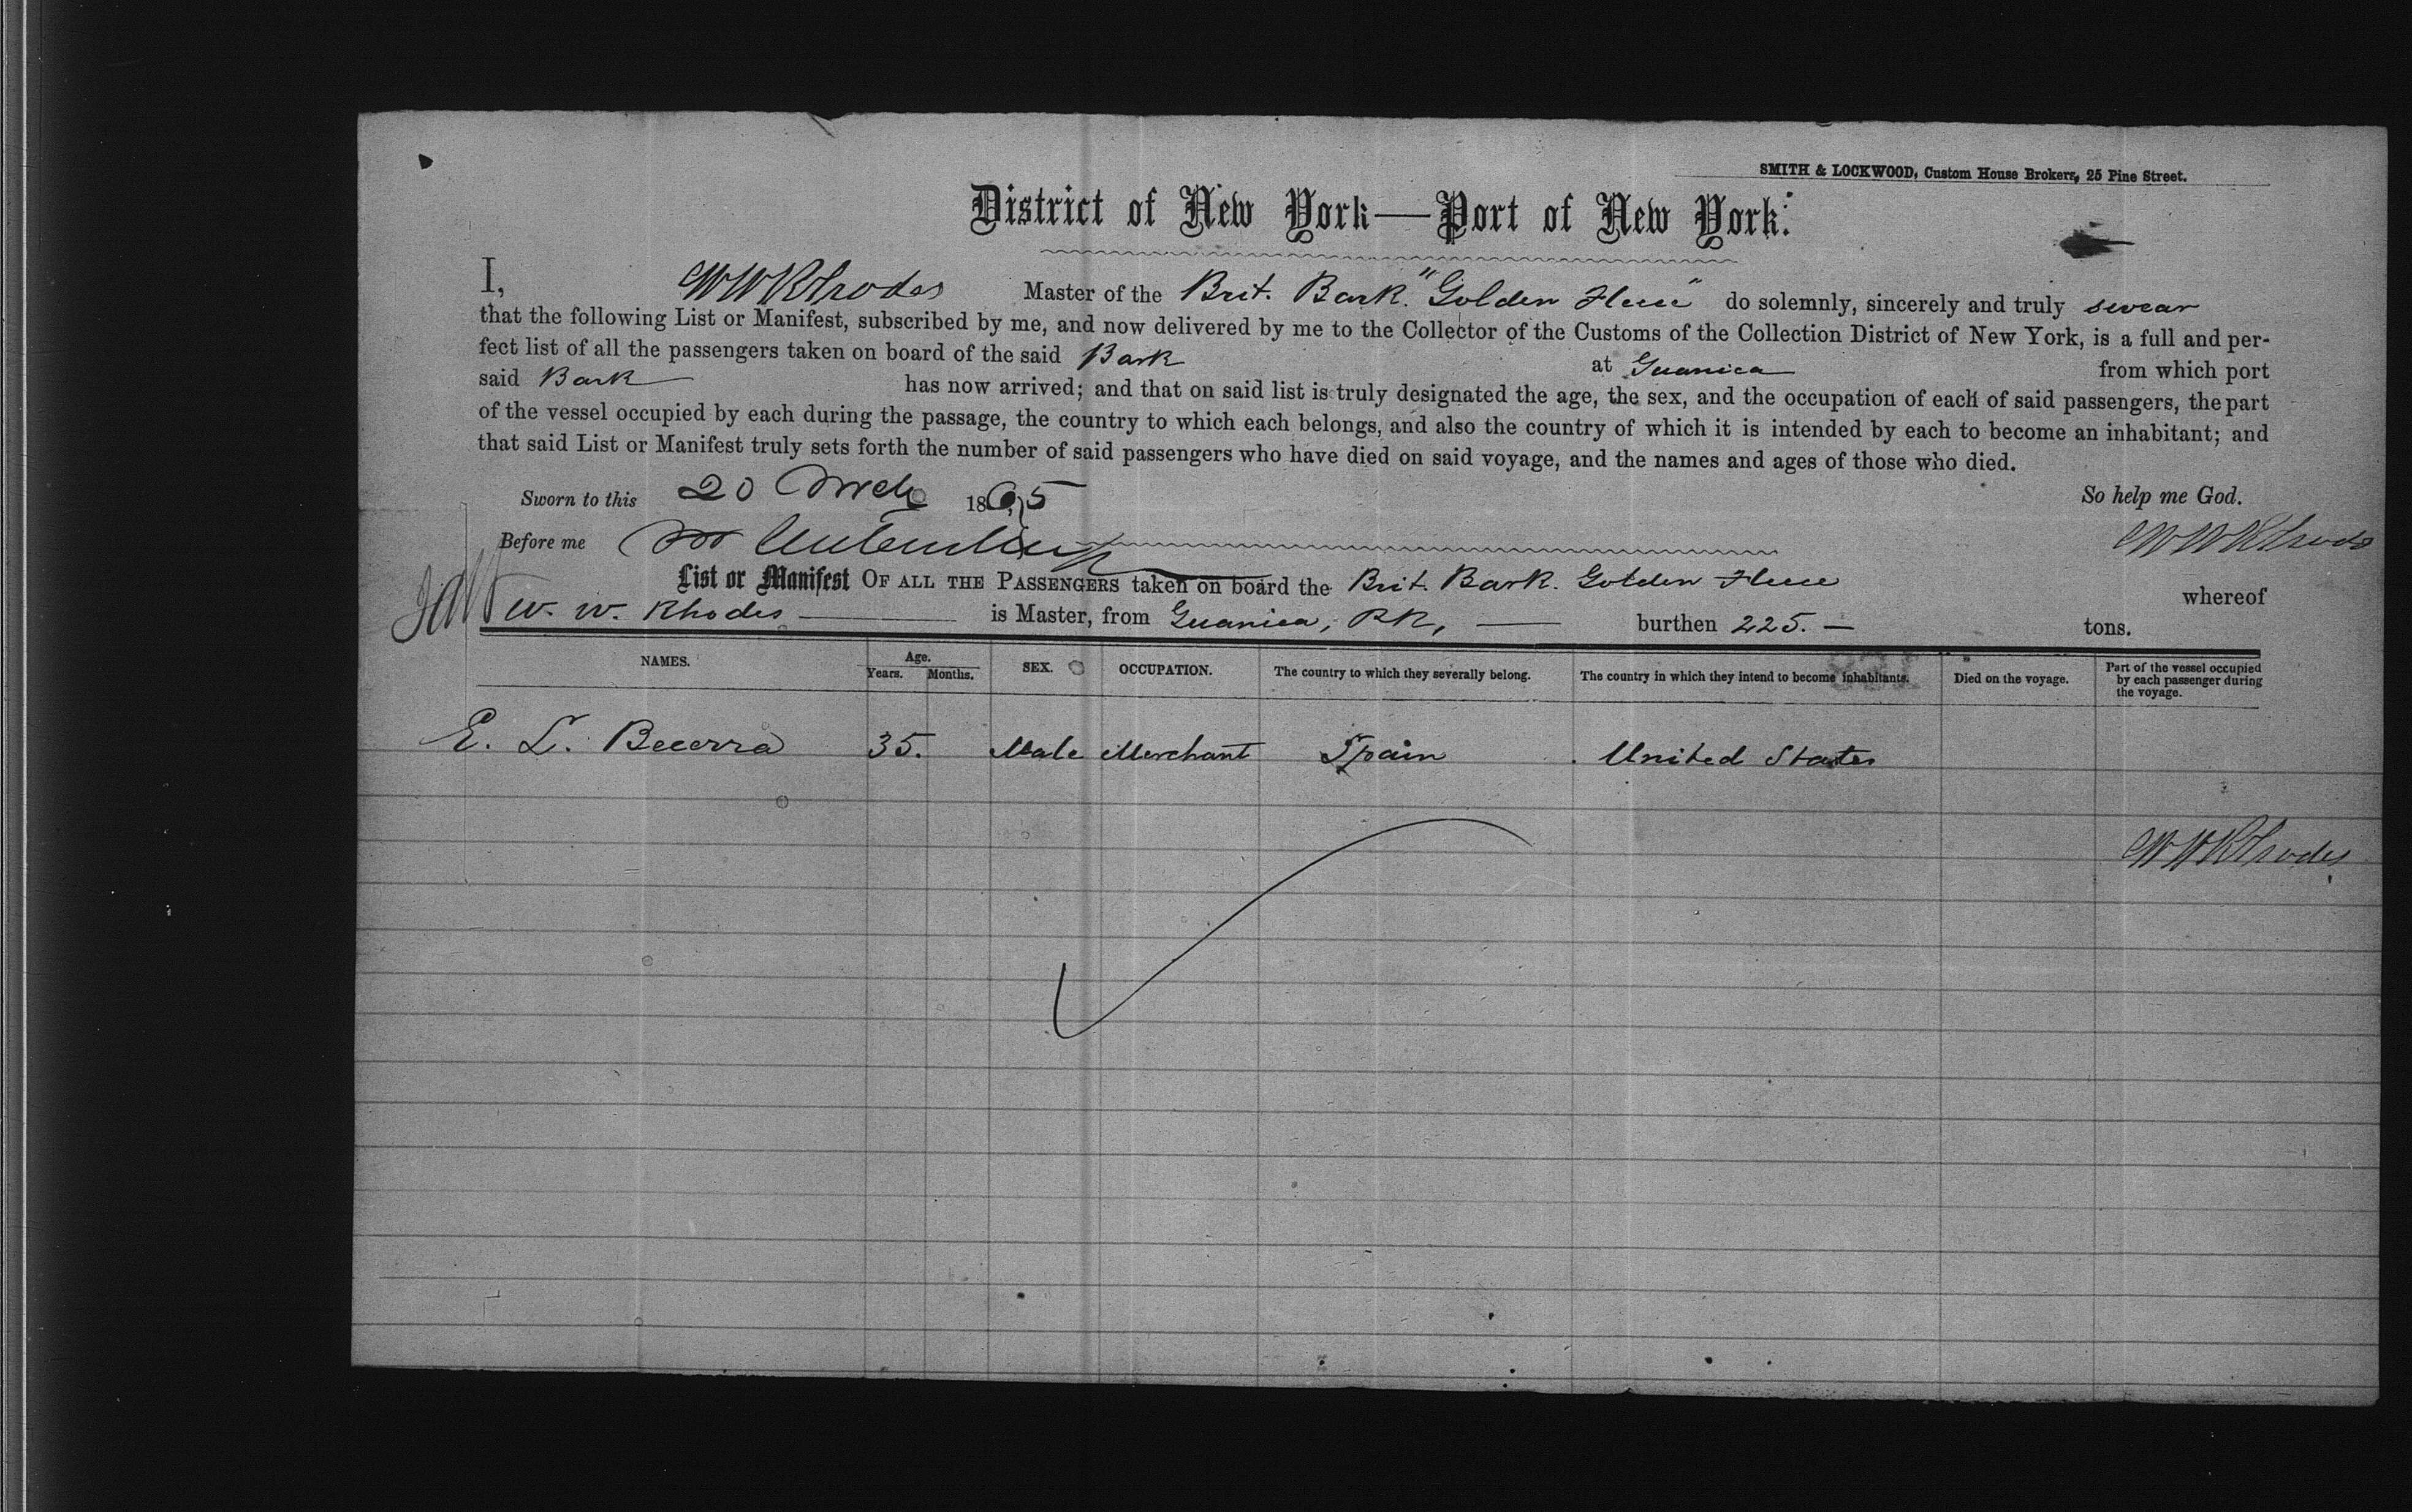 SMITH & LOCKWOOD, Custom House Brokers, 25 Pine Street.
District of New York—Port of New York.
I, W W Rhodes Master of the Brit. Bark. "Golden Fleece" do solemnly, sincerely and truly swear
that the following List or Manifest, subscribed by me, and now delivered by me to the Collector of the Customs of the Collection District of New York, is a full and per-
fect list of all the passengers taken on board of the said Bark at Guanica from which port
said Bark has now arrived; and that on said list is truly designated the age, the sex, and the occupation of each of said passengers, the part
of the vessel occupied by each during the passage, the country to which each belongs, and also the country of which it is intended by each to become an inhabitant; and
that said List or Manifest truly sets forth the number of said passengers who have died on said voyage, and the names and ages of those who died.
Sworn to this 20 Mch 1865 So help me God.
Before me W W Rhodes
List or Manifest OF ALL THE PASSENGERS taken on board the Brit. Bark. Golden Fleece whereof
W. W. Rhodes is Master, from Guanica, P.R., burthen 225. tons.
NAMES. Age. Years. Months. SEX. OCCUPATION. The country to which they severally belong. The country in which they intend to become inhabitants. Died on the voyage. Part of the vessel occupied by each passenger during the voyage.
E. L. Becerra 35. Male Merchant Spain United States
W W Rhodes